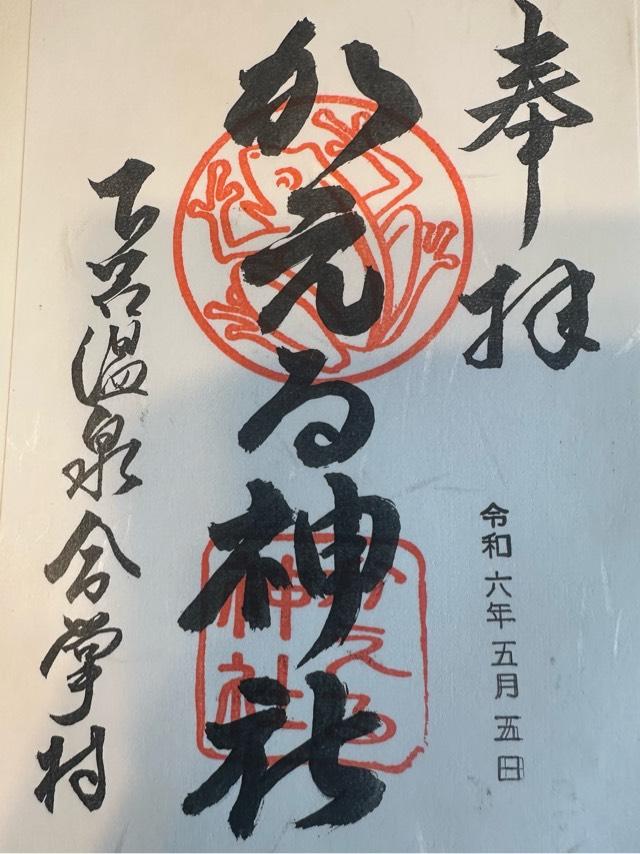 奉拝
令和六年五月五日
かえる神社
かえる
神社
下呂温泉合掌村